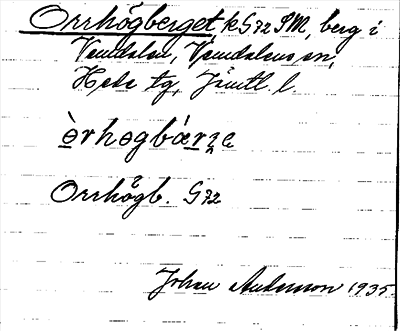 Orrhögberget, k G72 SM, berg i
Vemdalen, Vemdalens sn,
Hede tg, Jämtl. l.
òrhøgbárʒe
Orrhögb. G72
Johan Anderson 1935